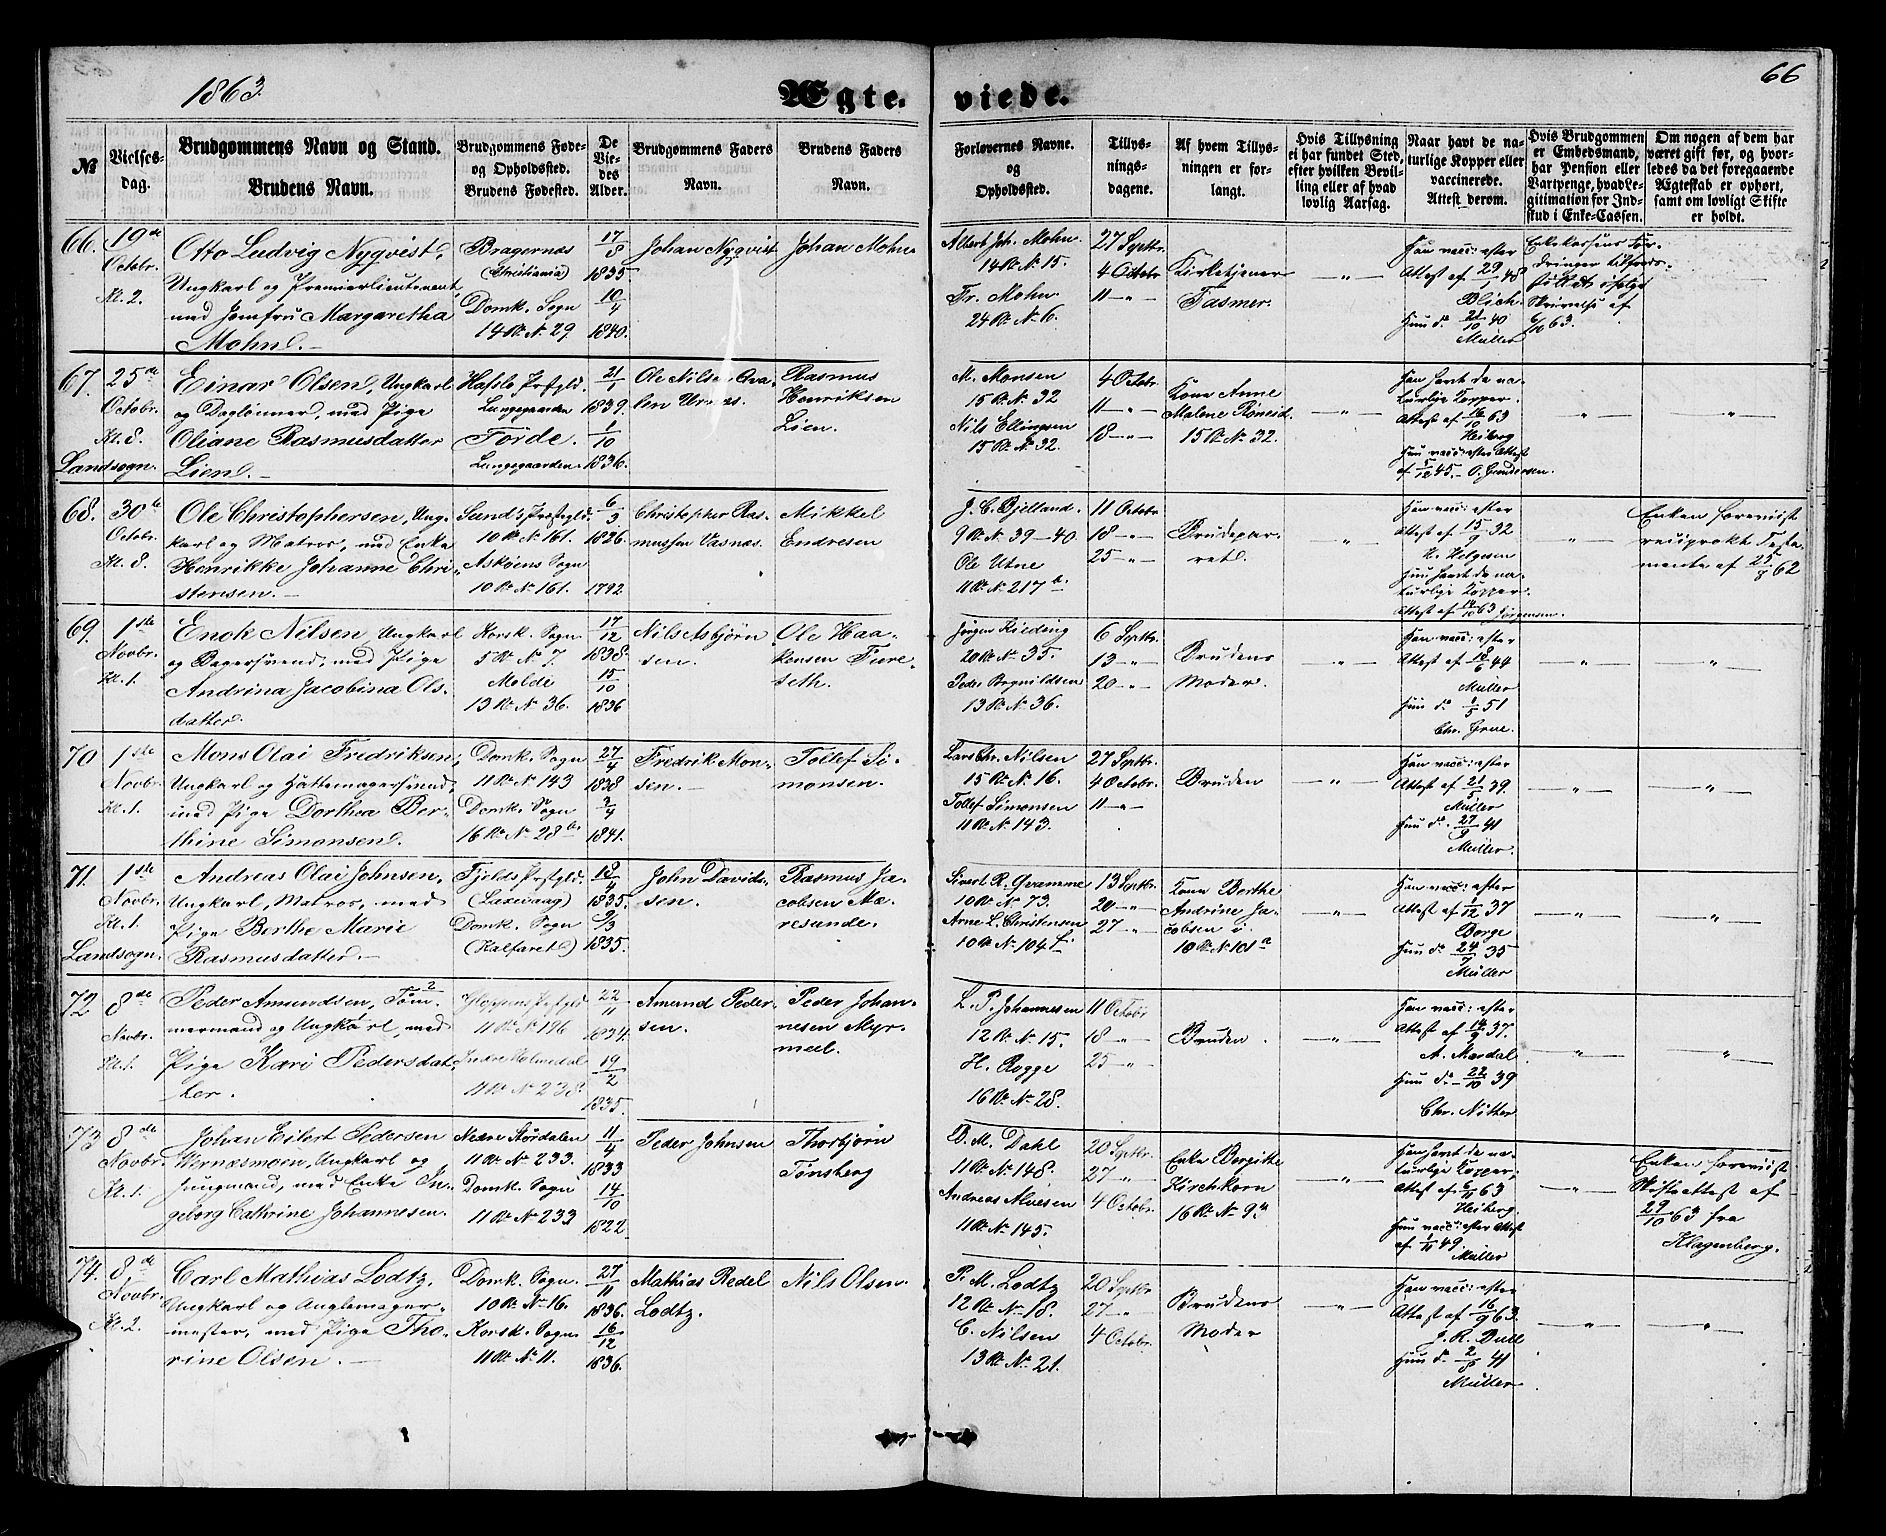 1863.
Ægte-
viede.
66
№
Vielses-
dag.
Brudgommens Navn og Stand.
Brudens Navn.
Brudgommens Føde-
og Opholdssted.
Brudens Fødested.
De
Vie-
des
Alder.
Brudgommens Faders
Navn.
Brudens Faders
Navn.
Forlovernes Navne.
og
Opholdssted.
Tillys-
nings-
dagene.
Af hvem Tillys-
ningen er for-
langt.
Hvis Tillysning
ei har fundet Sted,
efter hvilken Bevil-
ling eller af hvad
lovlig Aarsag.
Naar havt de na-
turlige Kopper eller
vaccinerede.
Attest derom.
Hvis Brudgommen
er Embedsmand,
har Pension eller
Vartpenge, hvad Le-
gitimation for Ind-
skud i Enke-Cassen.
Om nogen af dem har
været gift før, og hvor-
ledes da det foregaaende
Ægteskab er ophørt,
samt om lovligt Skifte
er holdt.
66. 19de
Octobr.
Kl. 2.
Otto Ludvig Nyqvist,
Ungkarl og Premierlieutenant,
med Jomfru Margaretha
Mohn. —
Bragernæs
(Christiania)
Domk. Sogn
14 R. № 29
17/8
1835.
10/4
1840.
Johan Nyqvist
Johan Mohn
Albert Joh. Mohn.
14 R. № 15.
Fr. Mohn.
24 R. № 6.
27 Septbr.
4 Octobr
11 — „
Kirketjener
Fasmer.
„
Han vacc: efter
Attest af
Blich.
Hun do 21/10 40
Müller
Enkekassens For-
dringer tilfreds-
stillet ifølge
Skrivelse af
6/10 63.
67. 25de
Octobr.
Kl. 8.
Landsogn.
Einar Olsen, Ungkarl
og Daglønner, med Pige
Oliane Rasmusdatter
Lien. —
Hafslo Præstgld.
Lungegaarden
Førde.
Lungegaarden.
21/1
1839.
1/10
1836.
Ole Nilsen
Urnes.
Rasmus
Henriksen
Lien.
M. Monsen
15 R. № 32
Nils Ellingsen
15 R. № 32.
4 Octobr.
11 — „
18 — „
Kone Anne
Malene
15 R. № 32.
„
Han havt de na-
turlige Kopper.
Attest af 16/10 63
Heiberg
Hun vacc: efter Attest
af 5/12 45. — O. Gundersen.
„
„
68. 30te
Octobr.
Kl. 8.
Ole Christophersen, Ung-
karl og Matros, med Enke
Henrikke Johanne Chri-
stensen. —
Sund's Præstegld.
10 R. № 161.
Askøens Sogn
10 R. № 161.
6/3
1826.
1792
Christopher Ras-
mussen Vasnæs.
Mikkel
Endresen
J. C. Bjelland.
9 R. № 39—40.
Ole Utne
11 R. № 217b.
11 Octobr
18 — „
25 — „
Brudepar-
ret.
„
Han vacc: efter
Attest af 15/9 32
H. Helgesen
Hun havt de na-
turlige Kopper
Attest af 14/10 63 Jørgensen.
„
Enken foreviist
reciprokt Testa-
mente af 25/8 62
69. 1ste
Novbr.
Kl. 1.
Enok Nilsen, Ungkarl
og Bagersvend, med Pige
Andrina Jacobina Ols-
datter.
Korsk. Sogn
5 R. № 7.
Molde
13 R. № 36.
17/12
1838.
15/10
1836
Nils Asbjørn
sen.
Ole Haa-
konsen Fure-
seth.
Jørgen Rieding
20 R. № 35.
Peder Bognildsen
13 R. № 36.
6 Septbr.
13 — „
20 — „
Brudens
Moder.
„
Han vacc: efter
Attest af 18/6 44
Müller
Hun do 1/5 51
„
„
70. 1ste
Novbr.
Kl. 1.
Mons Olai Fredriksen,
Ungkarl og Hattemagersvend,
med Pige Dorthea Ber-
thine Simonsen.
Domk. Sogn
11 R. № 143
Domk. Sogn
16 R. № 28b.
27/4
1838
3/4
1841.
Fredrik Mon-
sen. —
Tollef Si-
monsen.
Lars Chr. Nilsen
15 R. № 16.
Tollef Simonsen
11 R. № 143.
27 Septbr.
4 Octobr.
11 — „
Bruden
„
Han vacc: efter
Attest af 21/5 39.
Müller
Hun do. 27/9 41
Müller.
„
„
71. 1ste
Novbr.
Kl. 1.
Landsogn.
Andreas Olai Johnsen,
Ungkarl, Matros, med
Pige Berthe Marie
Rasmusdatter. —
Fjelds Præstgld.
(Laxevaag)
Domk. Sogn
(Kalfaret)
18/4
1835.
9/3
1835.
John Davids-
sen.
Rasmus Ja-
cobsen Næ-
resunde.
Sivert R. Qvamme
10 R. № 73.
Arne L. Christensen
10 R. № 104
13 Septbr.
20 — „
27 — „
Kone Berthe
Andrine Ja-
cobsen i
10 R. № 101a
„
Han vacc: efter
Attest af 1/12 37
Borge
Hun do 24/7 35
Müller
„
„
72 8de
Novbr.
Kl. 1.
Peder Amundsen, Tøm-
mermand og Ungkarl, med
Pige Kari Pedersdat-
ter.
Præstgld
11 R. № 196
Indre Holmedal
11 R. № 238.
22/11
1834.
19/2
1835.
Amund Peder-
sen.
Peder Johan-
nesen Myr-
mel.
L. P. Johannesen
12 R. № 15.
H. Rogge
16 R. № 28.
11 Octobr
18 — „
25 — „
Bruden.
„
Han vacc: efter
Attest af 14/9 37.
A. Mardal
Hun do — 22/10 39
Chr. Nitter
„
„
73 8de
Novbr.
Kl. 1.
Johan Eilert Pedersen
Wernæsmoen, Ungkarl og
Jungmand, med Enke In-
geborg Cathrine Johannesen.
Nedre Størdalen
11 R. № 233.
Domk. Sogn
11 R. № 233
11/4
1833
14/10
1822.
Peder Johnsen
Thorbjørn
Tønsberg
B. M. Dahl
11 R. № 148.
Andreas Alvesen
11 R. № 145.
20 Septbr.
27 — „
4 Octobr.
Enke Borgitte
Kirchhorn
16 R. № 9a
„
Han havt de na-
turlige Kopper,
Attest af 6/11 63
Heiberg.
Hun vacc: efter Attest
af 1/11 49. Müller
„
Enken foreviist
Skifteattest af
29/10 63 fra
Klagenberg.
74. 8de
Novbr.
Kl. 2.
Carl Mathias Lodtz,
Ungkarl og Anglemager-
mester, med Pige Tho-
rine Olsen. —
Domk. Sogn.
10 R. № 16.
Korsk. Sogn
11 R. № 11.
27/11
1836.
16/12
1836.
Mathias Redel
Lodtz.
Nils Olsen.
P. M. Lodtz
12 R. № 18.
C. Nilsen
13 R. № 21.
20 Septbr
27 — „
4 Octobr.
Brudens
Moder
„
Han vacc: efter
Attest af 16/9 63.
J. R. Dall
Hun do — 2/8 41
Müller
„
„